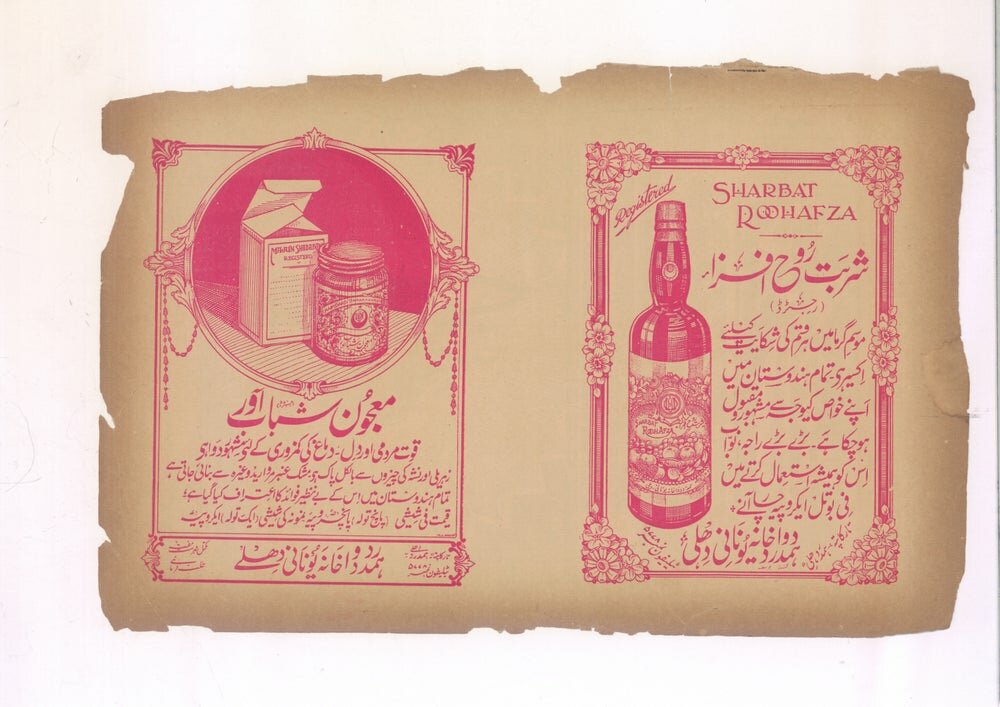 Registered
SHARBAT
ROOHAFZA
شربت روح افزا
(رجسٹرڈ)
موسم گرما میں ہر قسم کی شکایت کیلئے
اکسیر ہی تمام ہندوستان میں
اپنے خواص کیوجہ سے مشہور و مقبول
ہوچکا ہے۔ بڑے بڑے راجہ، نواب
اس کو ہمیشہ استعمال کرتے ہیں
فی بوتل ایکروپیہ چار آنے
ہمدرد دواخانہ یونانی دھلی
SHARBAT
ROOHAFZA
MAJUN SHABAB
REGISTERED
معجون شباب آور
قوت مردمی اور دل۔ دماغ کی کمزوری کے لئے مشہور دوا ہی
زہریلی اور نشہ کی چیزوں سے بالکل پاک ہی مشک عنبر مروارید وغیرہ سے بنائی جاتی ہے
تمام ہندوستان میں اس کے بے نظیر فوائد کا اعتراف کیا گیا ہے
قیمت فی شیشی (پانچ تولہ) پانچ روپیہ نمونہ کی شیشی (ایک تولہ) ایکروپیہ
ہمدرد دواخانہ یونانی دھلی
تار کا پتہ: ہمدرد دہلی
ٹیلیفون نمبر